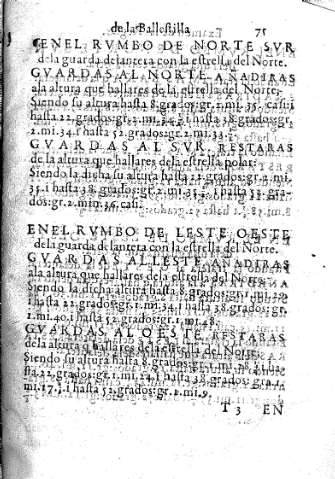 de la Ballestilla 75
EN EL RVMBO DE NORTE SVR
de la guarda delantera con la estrella del Norte.
GVARDAS AL NORTE AÑADIRAS
a la altura que hallares de la estrella del Norte:
Siendo su altura hasta 8. grados: gr. 2. mi. 35. casi: i
hasta 22. grados: gr. 2. mi. i hasta 38. grados: gr.
2. mi. 34. i hasta 52. grados: gr. 2. mi. 33.
GVARDAS AL SVR, RESTARAS
de la altura que hallares de la estrella polar:
Siendo la dicha su altura hasta 22. grados: gr. 2. mi.
35. i hasta 38. gr. 2. mi. i hasta 52. grados:
gr. 2. min. 36. casi.
EN EL RVMBO DE LESTE OESTE
de la guarda delantera con la estrella del Norte.
GVARDAS AL LESTE AÑADIRAS
a la altura que hallares de la estrella del Norte:
Siendo la dicha altura hasta 8. grados: gr. 1. mi.
i hasta 22. grados: gr. 1. mi. i hasta 38. grados:
gr. 1. mi. 40. i hasta 52. grados: gr. 1. mi. 48.
GVARDAS AL OESTE, RESTARAS
de la altura q hallares de la estrella del Norte:
Siendo su altura hasta 8. grados: gr. 1. mi. 28. i ha-
sta 22. grados: gr. 1. mi. 24. i hasta 38. grados: gr. 1.
mi. 17. i hasta 52. grados: gr. 1. mi. 9.
T 3 EN